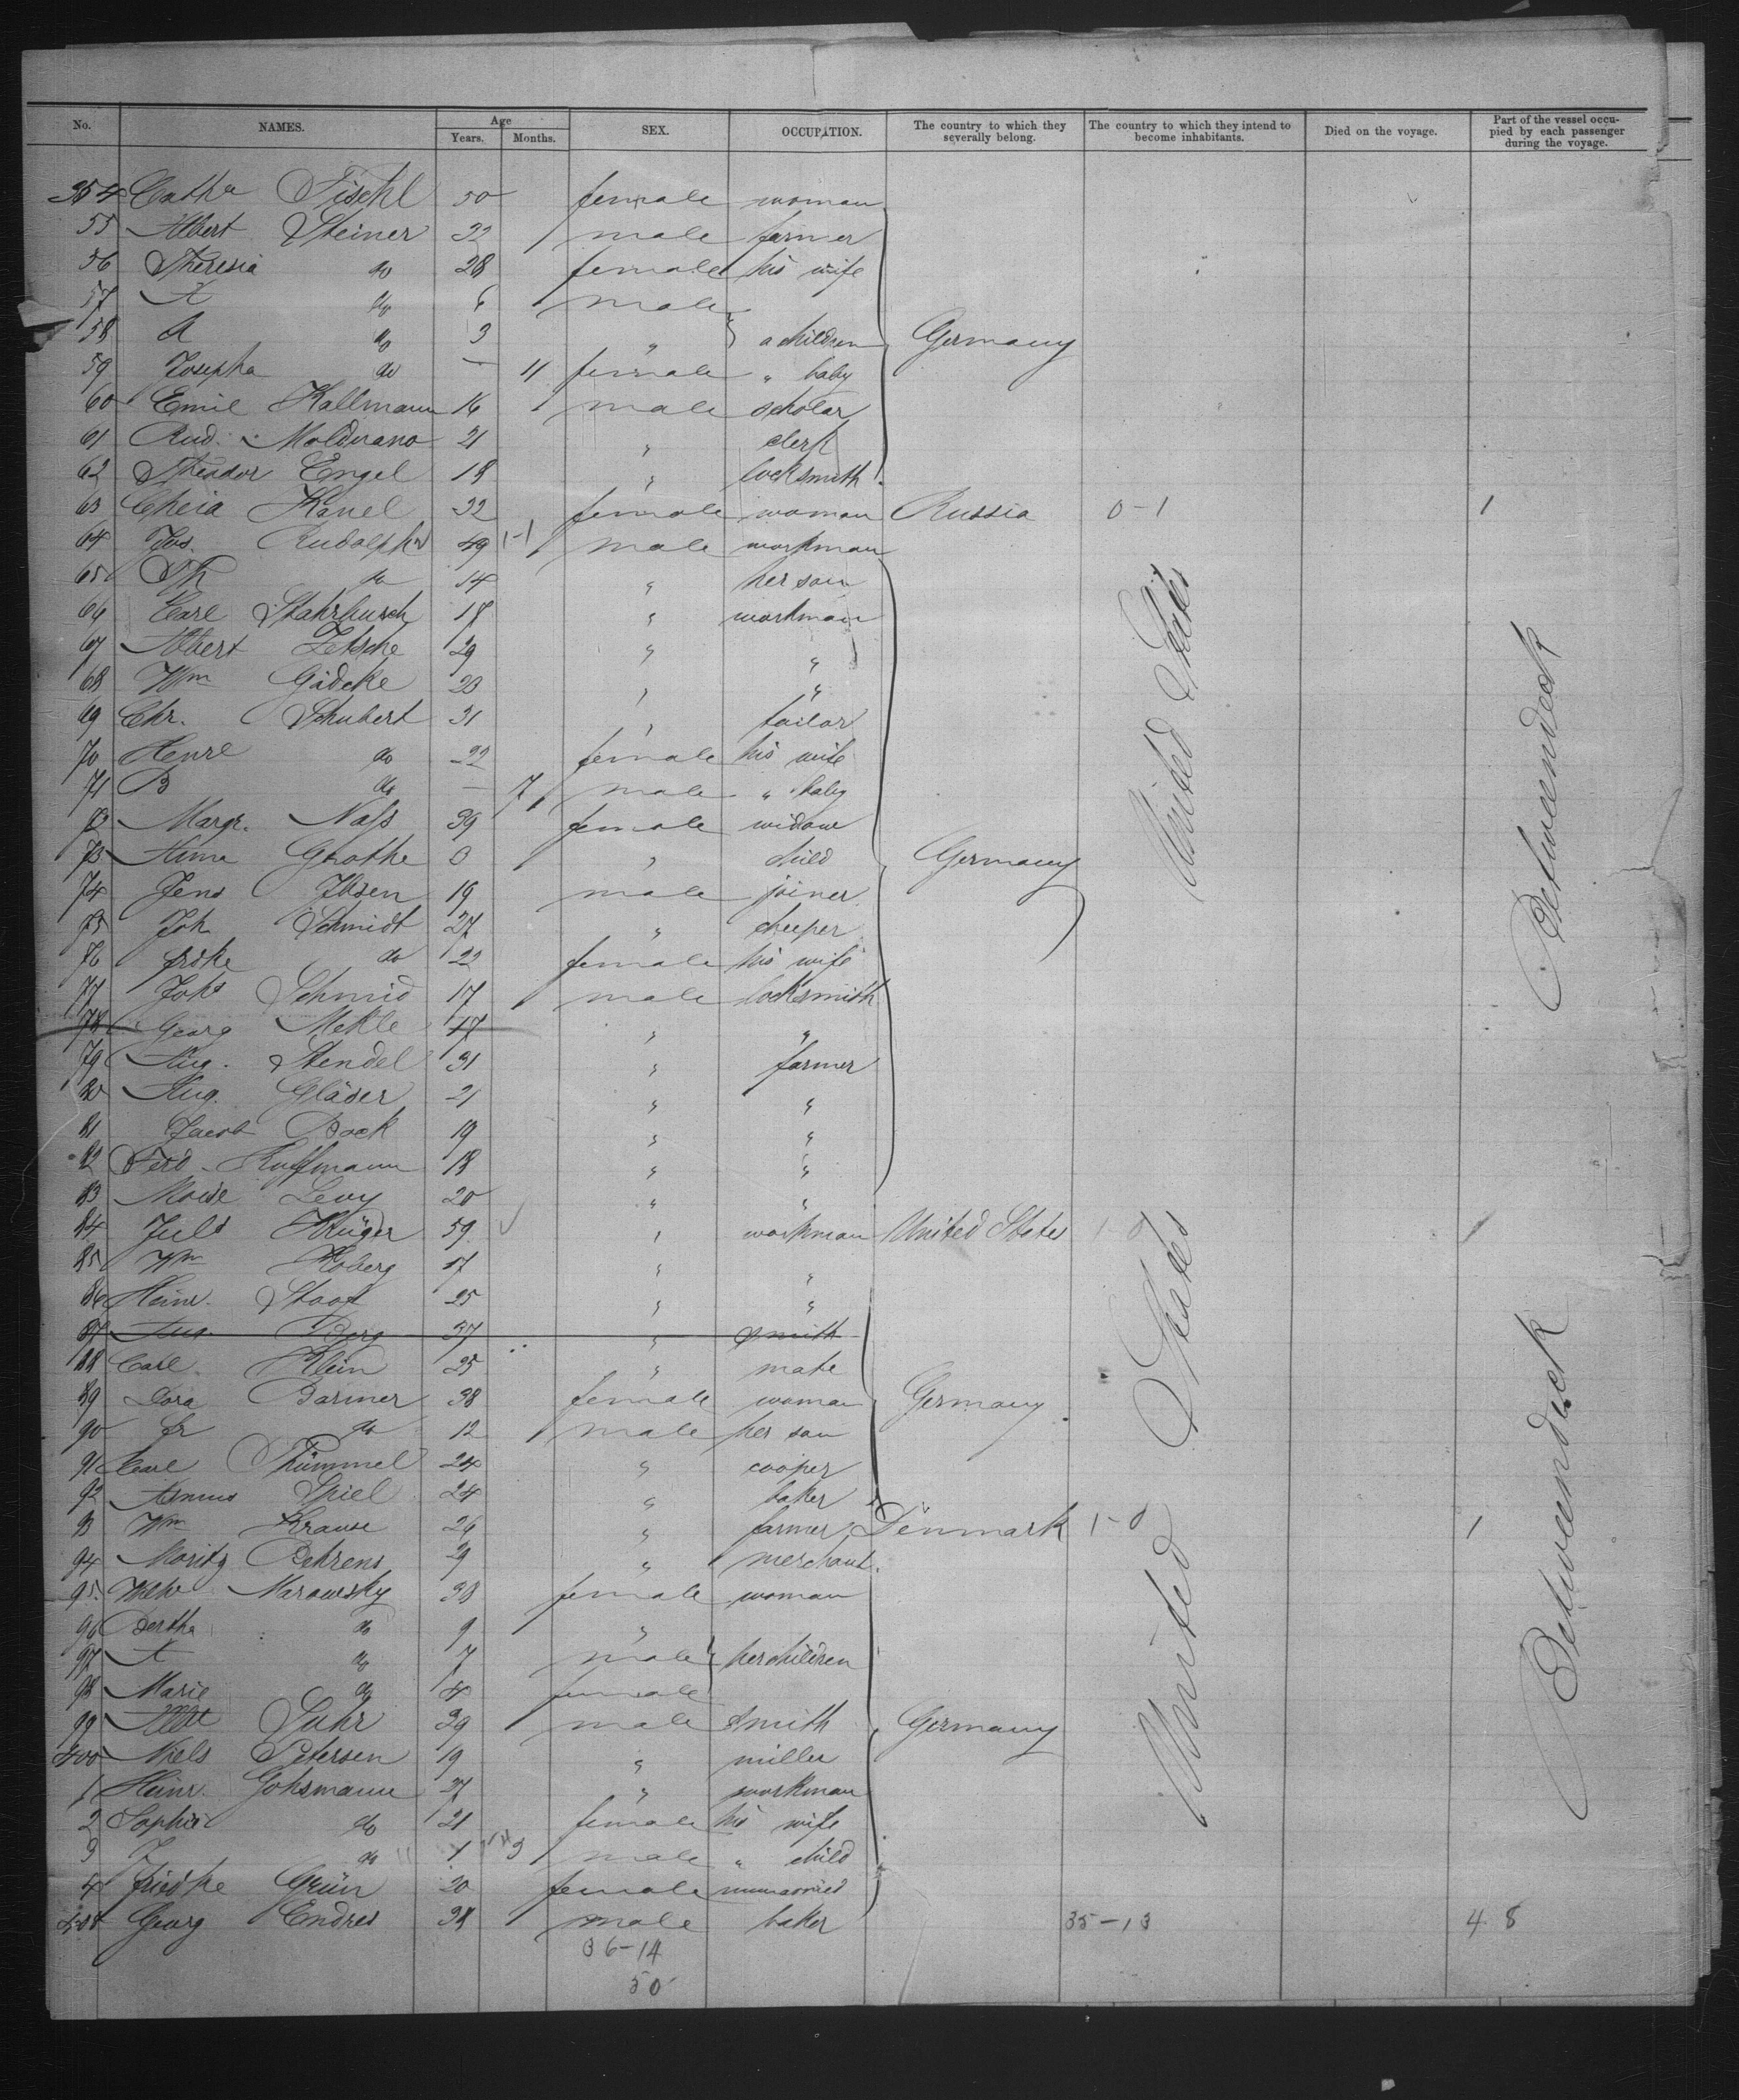 No. NAMES. Age Years. Months. SEX. OCCUPATION. The country to which they severally belong. The country to which they intend to become inhabitants. Died on the voyage. Part of the vessel occupied by each passenger during the voyage.
354 Catha Fischl 50 female woman
55 Albert Steiner 32 male farmer
56 Theresia do 28 female his wife
57 A do 6 male
58 A do 3 " a children Germany
59 Josepha do — 11 female " baby
60 Emil Hallmann 16 male scholar
61 Rud. Moldurano 21 " clerk
62 Theodor Engel 18 " locksmith
63 Cheia Kanel 32 female woman Russia 0-1 1
64 Jos. Rudolph 49 1-1 male workman
65 Th do 14 " her son
66 Carl Stahrbusch 18 " workman
67 Albert Zetsche 29 " "
68 Wm Gädcke 23 " "
69 Chr. Schubert 31 " tailor
70 Henre do 22 female his wife
71 B do — 7 male " baby
72 Margr. Nass 39 female widow
73 Anna Grothe 0 " child Germany
74 Jens Ibsen 19 male joiner
75 Joh Schmidt 27 "
76 frdke do 22 female his wife
77 Johs Schmid 17 male locksmith
78 Georg Mekle 47 " "
79 Aug. Stendel 31 " farmer
80 Aug. Gläser 21 " "
81 Jacob Bock 19 " "
82 Ferd. Kuffmann 18 " "
83 Moise Levy 20 " "
84 Juls Krüger 59 " workman United States 1-0 1
85 Wm Koberg 17 " "
86 Heinr. Staaf 25 " "
87 Aug. Berg 37 " smith
88 Carl Klein 25 " mate
89 Dora Darmer 38 female woman Germany
90 fr do 12 male her son
91 Carl Thümmel 24 " cooper
92 Asmus Spiel 24 " baker
93 Wm Krause 26 " farmer Denmark 1-0 1
94 Moritz Behrens 29 " merchant
95 Marowsky 38 female woman
96 Bertha do 9 "
97 A do 7 male her children
98 Marie do 4 female
99 Suhr 39 male smith Germany
400 Niels Petersen 19 " miller
1 Heinr. Gohsmann 27 " workman
2 Sophie do 21 female his wife
3 J do 1 3 male " child
4 friedke Grün 20 female unmarried
405 Georg Endres 38 male baker 35-13 48
36-14
50
United States
Betweendeck
United States
Betweendeck